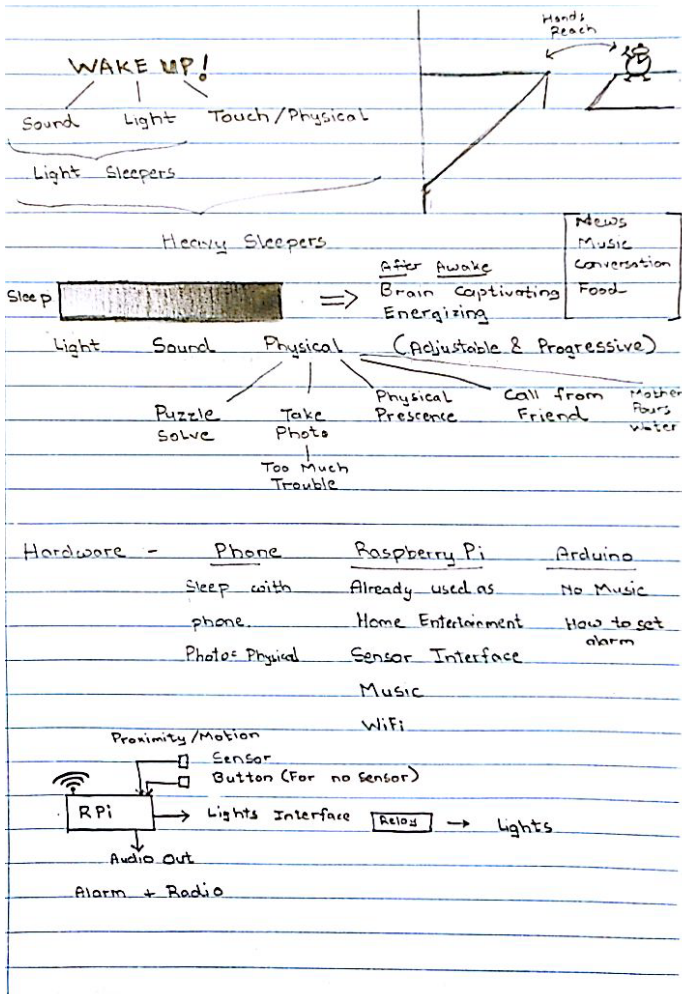 Hands
Reach
WAKE UP!
Sound Light Touch/Physical
Light Sleepers
Heavy Sleepers
News
Music
Conversation
Food
After Awake
Brain Captivating
Energizing
(Adjustable & Progressive)
Sleep
Light Sound Physical
Puzzle
Solve
Take
Photo
Too Much
Trouble
Physical
Prescence
Call from
Friend
Mother
Pours
Water
Hardware - Phone Raspberry Pi Arduino
Sleep with
phone.
Photo = Physical
Already used as
Home Entertainment
Sensor Interface
Music
WiFi
No Music
How to set
alarm
Proximity/Motion
Sensor
Button (For no sensor)
RPi
Lights Interface Relay Lights
Audio Out
Alarm + Radio